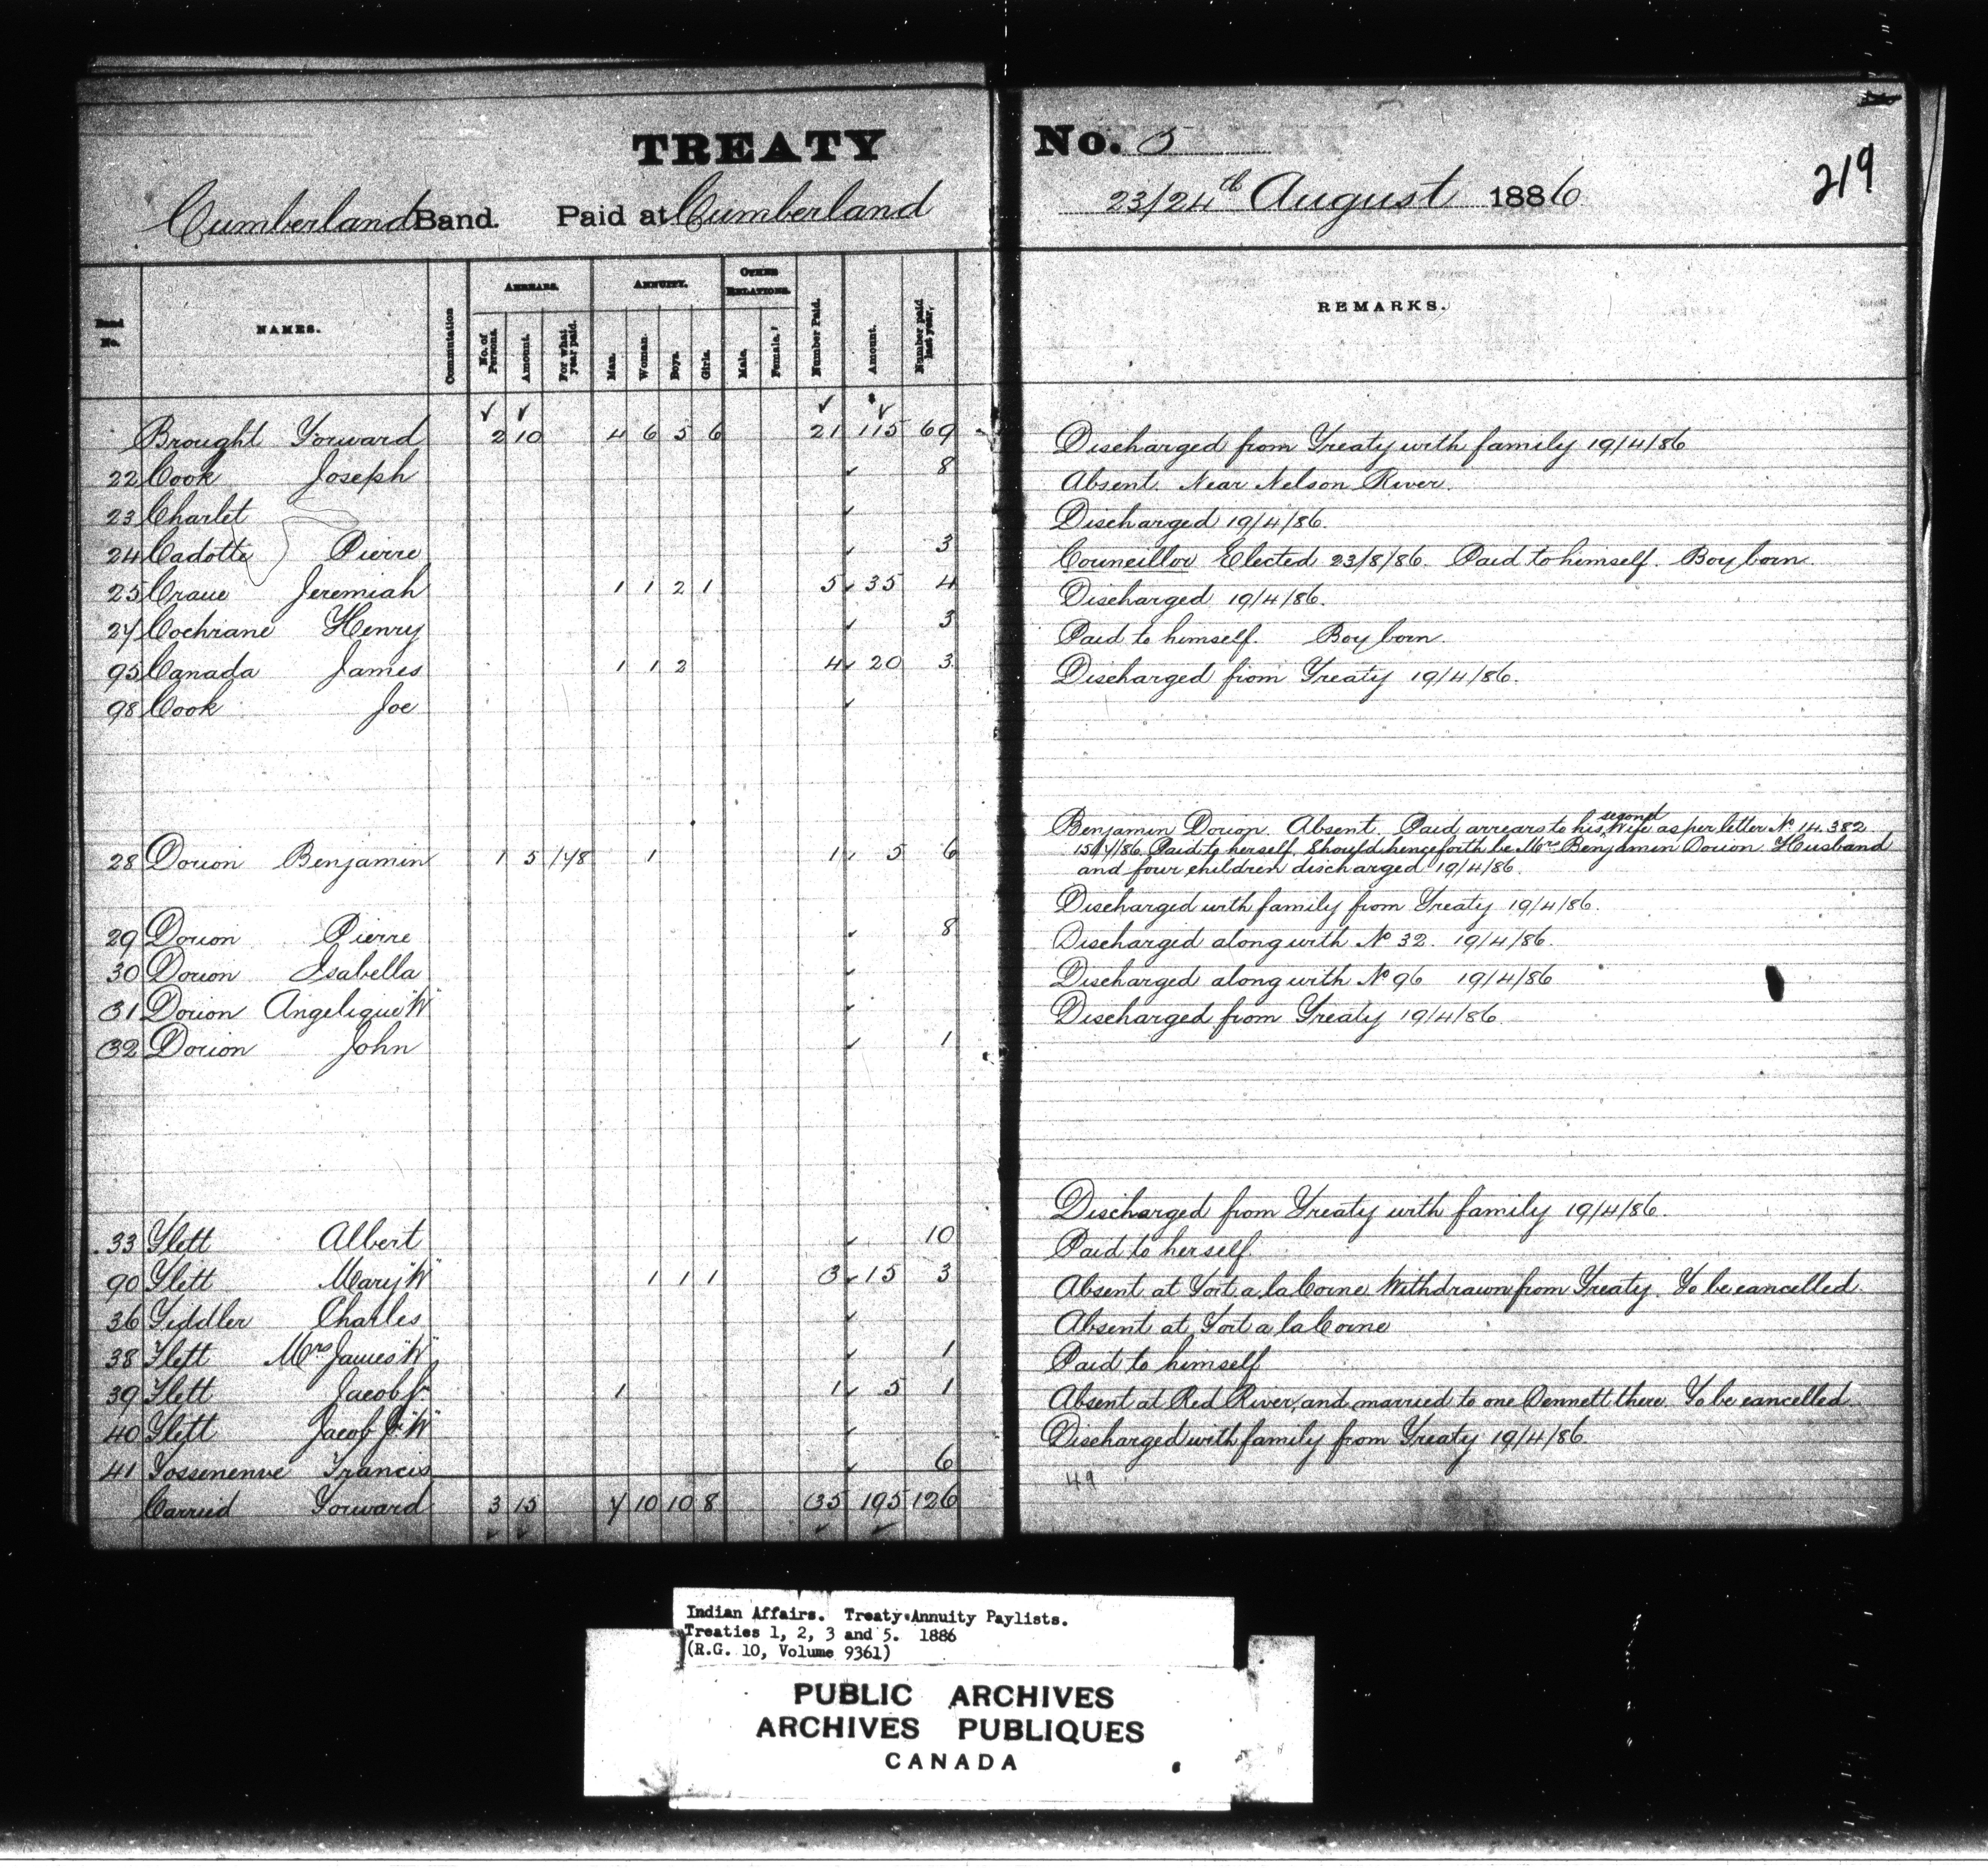 TREATY No. 5
219
Cumberland Band. Paid at Cumberland 23/24th August 1886
Band No. NAMES. Commutation ARREARS. No. of Persons. Amount. For what year paid. ANNUITY. Man. Woman. Boys. Girls. OTHER RELATIONS. Male. Female. Number Paid. Amount. Number paid last year. REMARKS.
Brought Forward 2 10 4 6 5 6 21 115 69
22 Cook Joseph 8 Discharged from Treaty with family 19/4/86
23 Charlet Absent. Near Nelson River.
24 Cadotte Pierre 3 Discharged 19/4/86.
25 Craue Jeremiah 1 1 2 1 5 35 4 Councillor Elected 23/8/86. Paid to himself. Boy born.
27 Cochrane Henry 3 Discharged 19/4/86.
95 Canada James 1 1 2 4 20 3 Paid to himself. Boy born.
98 Cook Joe Discharged from Treaty 19/4/86.
Benjamin Dorion. Absent. Paid arrears to his second Wife as per letter No 14.382
28 Dorion Benjamin 1 5 1/78 1 1 5 6 15/7/86. Paid to herself. Should henceforth be Mrs Benjamin Dorion. Husband
and four children discharged 19/4/86.
29 Dorion Pierre 8 Discharged with family from Treaty 19/4/86.
30 Dorion Isabella Discharged along with No 32. 19/4/86.
31 Dorion Angelique "W" Discharged along with No 96 19/4/86
32 Dorion John 1 Discharged from Treaty 19/4/86.
33 Flett Albert 10 Discharged from Treaty with family 19/4/86.
90 Flett Mary "W" 1 1 1 3 15 3 Paid to herself.
36 Fiddler Charles Absent at Fort a la Corne Withdrawn from Treaty. To be cancelled.
38 Flett Mrs James "W" 1 Absent at Fort a la Corne
39 Flett Jacob Jr 1 1 5 1 Paid to himself
40 Flett Jacob Jr "W" Absent at Red River, and married to one Dennett there. To be cancelled.
41 Fosseneuve Francis 6 Discharged with family from Treaty 19/4/86.
49
Carried Forward 3 15 7 10 10 8 35 195 126
Indian Affairs. Treaty Annuity Paylists.
Treaties 1, 2, 3 and 5. 1886
(R.G. 10, Volume 9361)
PUBLIC ARCHIVES
ARCHIVES PUBLIQUES
CANADA